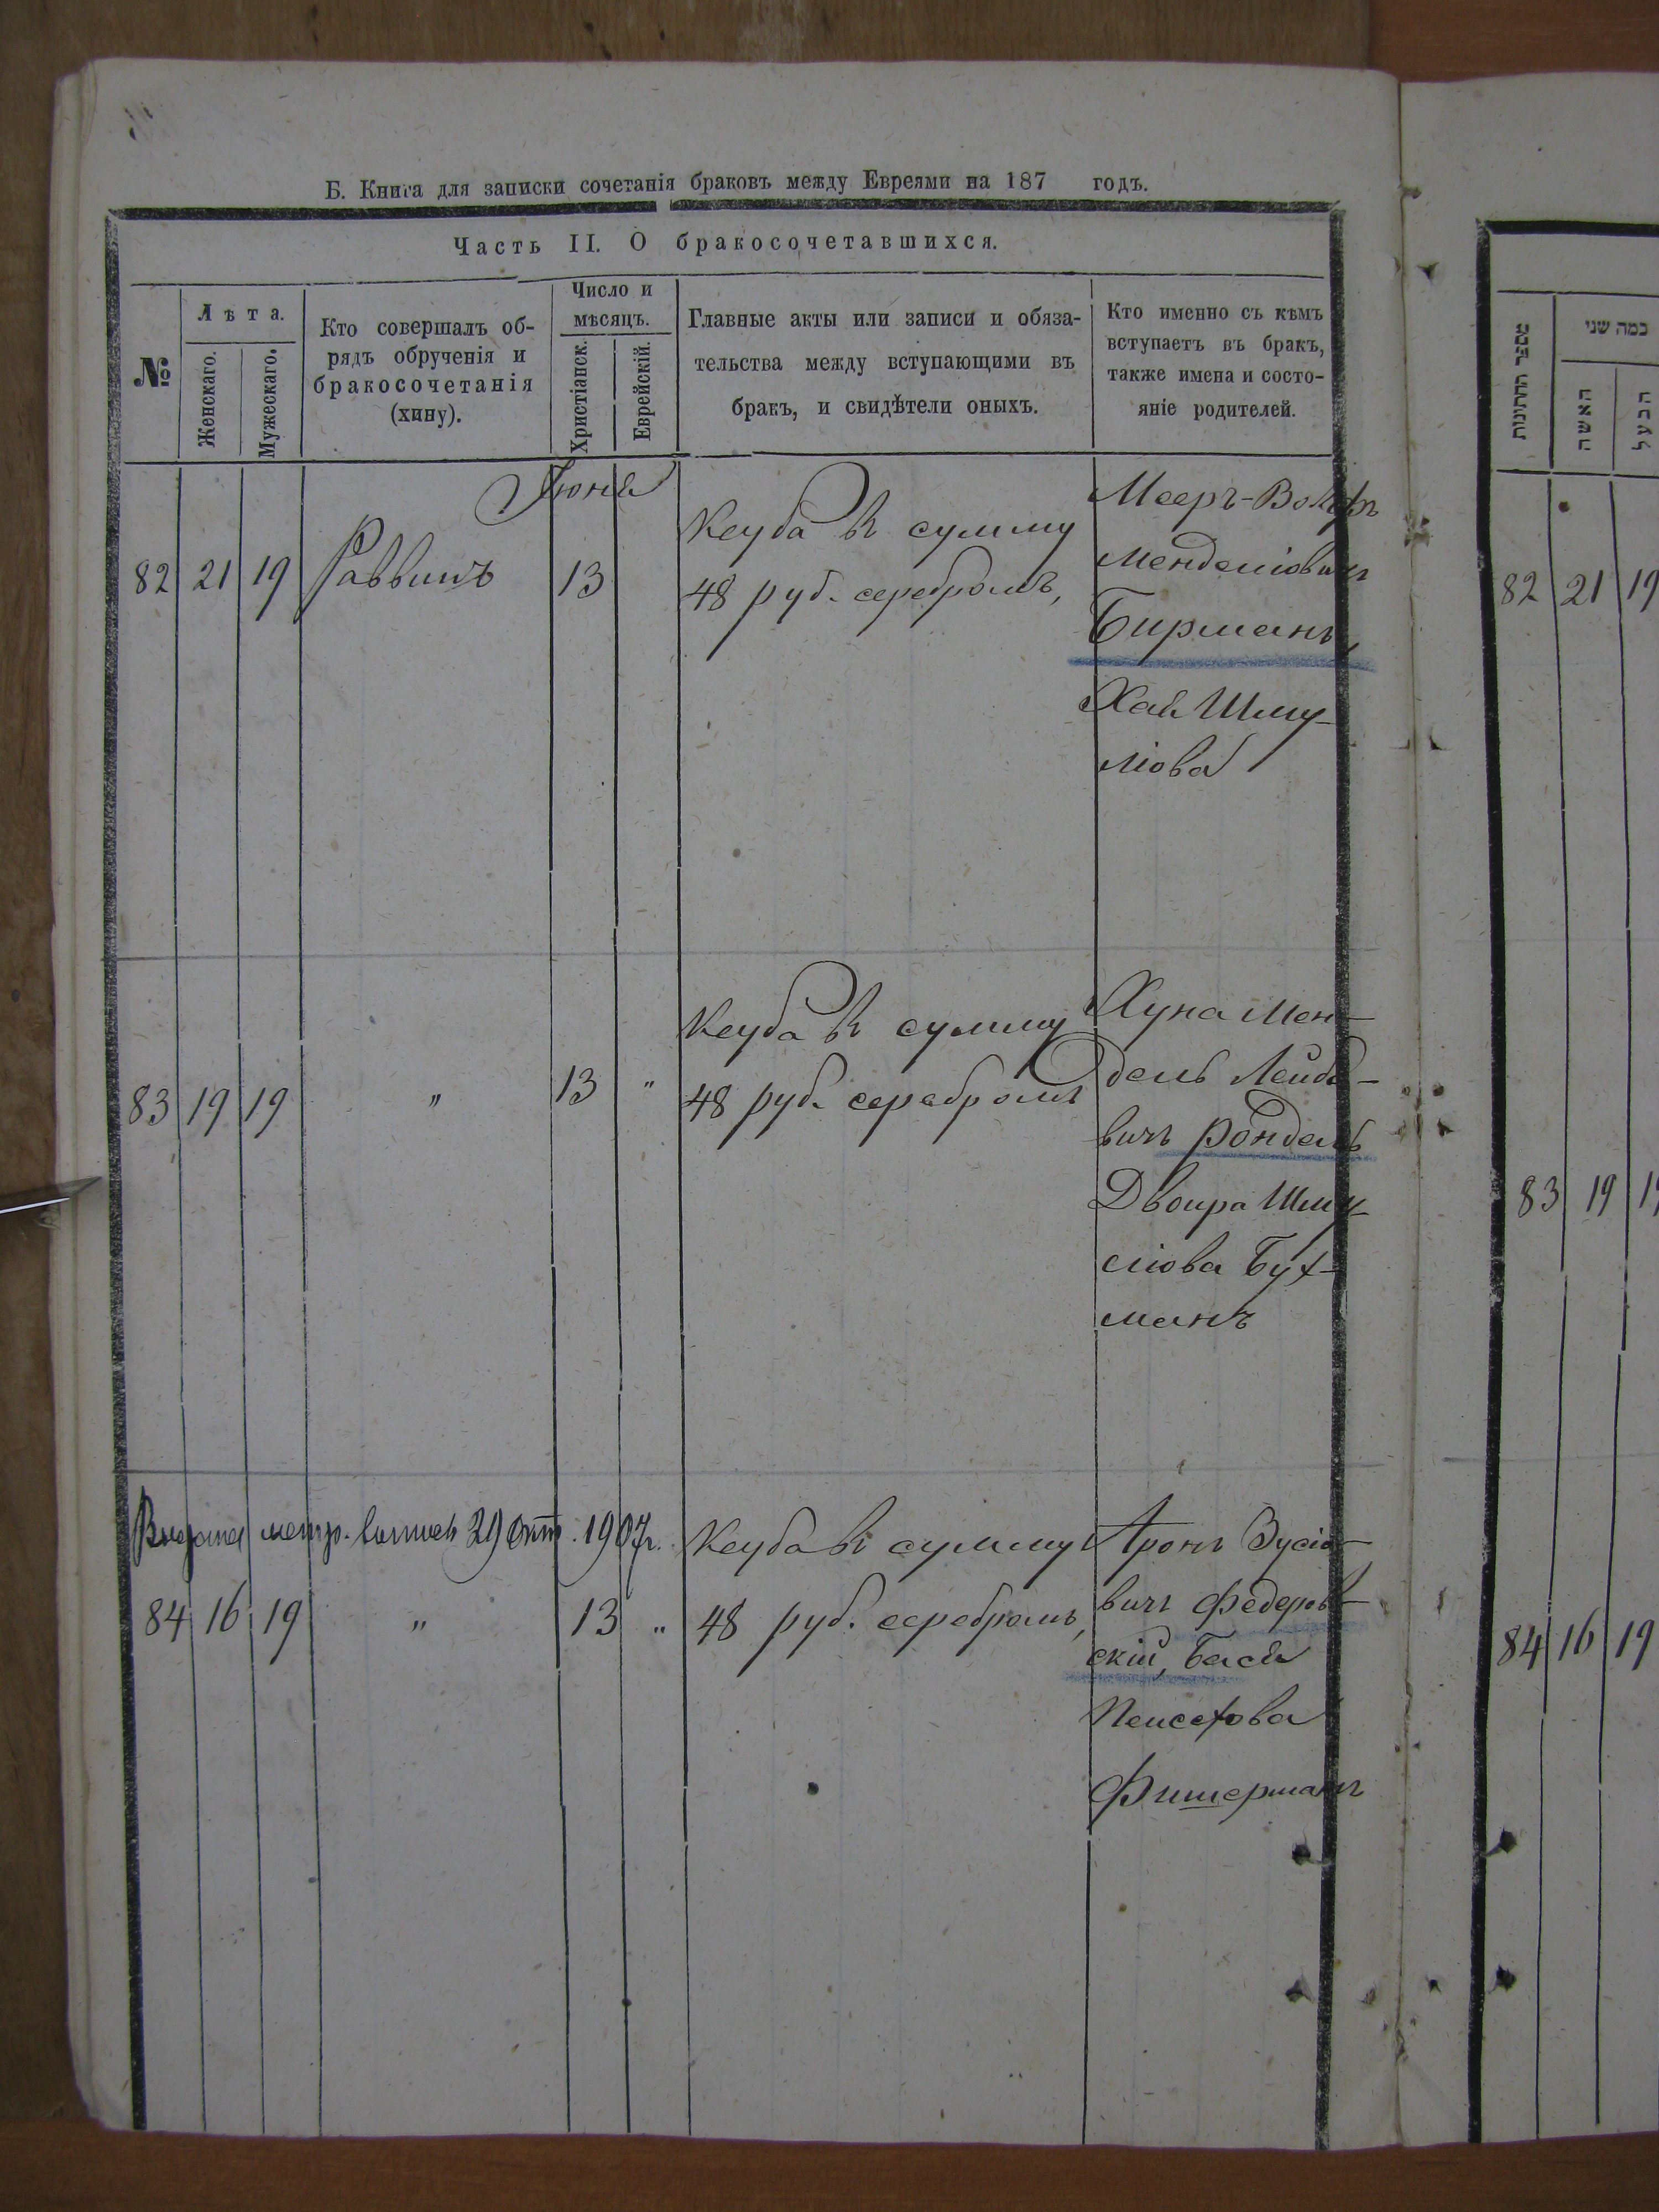 Б. Книга для записки сочетанія браковъ между Евреями на 187 годъ.
Часть II. О бракосочетавшихся.
№
Лѣта.
Женскаго.
Мужескаго.
Кто совершалъ об-
рядъ обрученія и
бракосочетанія
(хину).
Число и
мѣсяцъ.
Христіанск.
Еврейскій.
Главные акты или записи и обяза-
тельства между вступающими въ
бракъ, и свидѣтели оныхъ.
Кто именно съ кѣмъ
вступаетъ въ бракъ,
также имена и состо-
яніе родителей.
Іюня
82 21 19 Раввинъ 13
Кеуба въ сумму
48 руб. серебромъ,
Мееръ-Вольфъ
Менделіовичъ
Бирманъ,
Хая Шму-
ліова
83 19 19 " 13 "
Кеуба въ сумму
48 руб. серебромъ
Хуна Мен-
дель Лейбо-
вичъ Рондель
Двоира Шму-
ліова Бух-
манъ
метр. 29 Окт. 1907г.
84 16 19 " 13 "
Кеуба въ сумму
48 руб. серебромъ,
Аронъ Зусіо-
вичъ Федеров-
скій, Бася
Пейсахова
Фишерманъ
מספר החתונות
כמה שני
האשה
הבעל
82 21 19
83 19
84 16 19